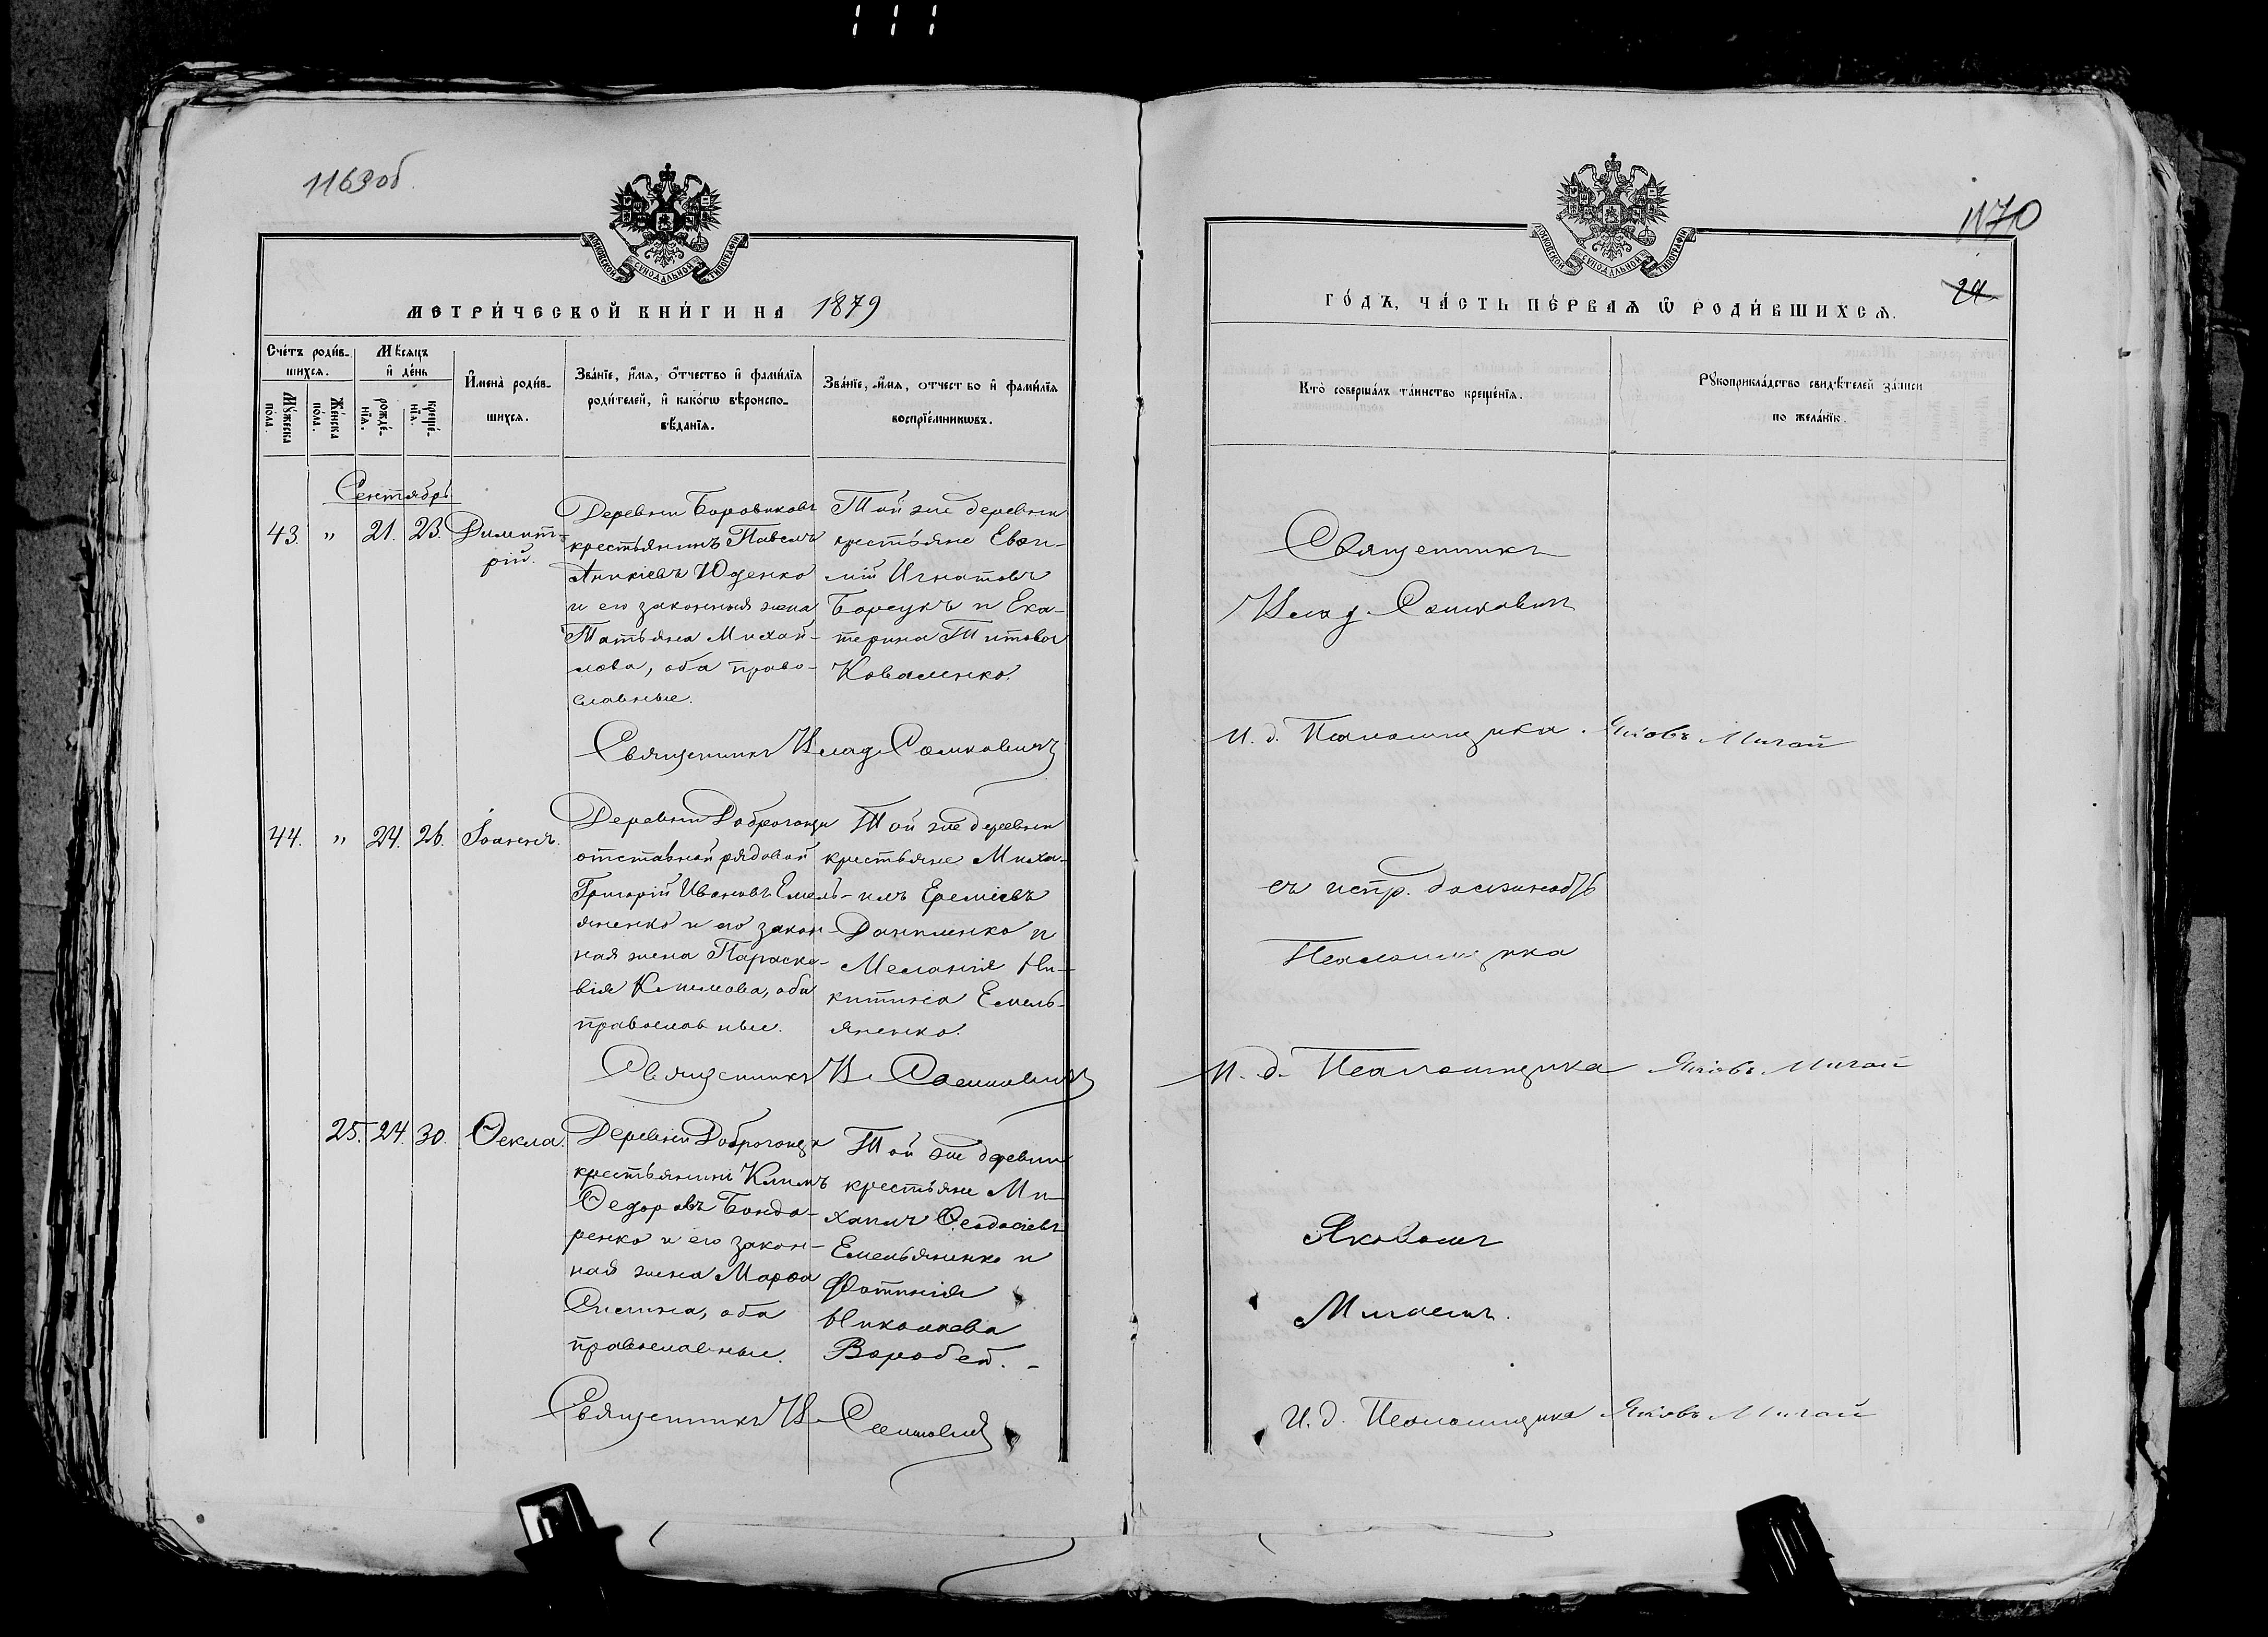 1163об.
МОСКОВСКОЙ СѴНОДАЛЬНОЙ ТИПОГРАФІИ
МЕТРИ́ЧЕСКОЙ КНИ́ГИ НА 1879
Сче́тъ роди́в-
шихся.
Мꙋ́жеска
по́ла.
Же́нска
по́ла.
Мѣ́сяцъ
и҆ де́нь
рожде́-
нїя.
креще́-
нїя.
И҆мена̀ роди́в-
шихся.
Зва́нїе, и҆́мя, о҆́тчество и҆ фами́лїя
роди́телей, и҆ како́гѡ вѣроиспо-
вѣ́данїя.
Зва́нїе, и҆́мя, отчество и҆ фами́лїя
воспрїе́мникѡвъ.
Сентябрь
43. " 21. 23. Димит-
рій.
Деревни Боровиковъ
крестьянинъ Павелъ
Аникіевъ Юденко
и его законныя жена
Татьяна Михай-
лова, оба право-
славные.
Той же деревни
крестьяне Евѳи-
мій Игнатовъ
Борсукъ и Ека-
терина Титова
Коваленко.
Священникъ Влад. Сошковичъ
44. " 24. 26. Іоаннъ.
Деревни Доброгощи
отставной рядовой
Григорій Ивановъ Емель-
яненко и его закон-
ная жена Параске-
вія Климова, оба
православные.
Той же деревни
крестьяне Миха-
илъ Еремеевъ
Даниленко и
Меланія Ни-
китина Емель-
яненко.
Священникъ В. Сошковичъ
25. 24. 30. Ѳекла.
Деревни Доброгощи
крестьянинъ Климъ
Ѳедоровъ Бонда-
ренко и его закон-
ная жена Марѳа
оба
православные.
Той же деревни
крестьяне Ми-
хаилъ Ѳеодосіевъ
Емельяненко и
Фотинія
Николаева
Воробей. -
Священникъ В. Сошковичъ
МОСКОВСКОЙ СѴНОДАЛЬНОЙ ТИПОГРАФІИ
1170
24
ГО́ДЪ, ЧА́СТЬ ПЕ́РВАЯ Ѡ РОДИ́ВШИХСЯ.
Кто̀ соверша́лъ та́инство креще́нїя.
Рꙋкоприкла́дство свидѣ́телей за́писи
по жела́нїю.
Священникъ
Влад. Сошкович
И. д. Псаломщика Яковъ Мигай
съ испр. должность
Псаломщика
И. д. Псаломщика Яковъ Мигай
Яковомъ
Мигаемъ.
И. д. Псаломщика Яковъ Мигай